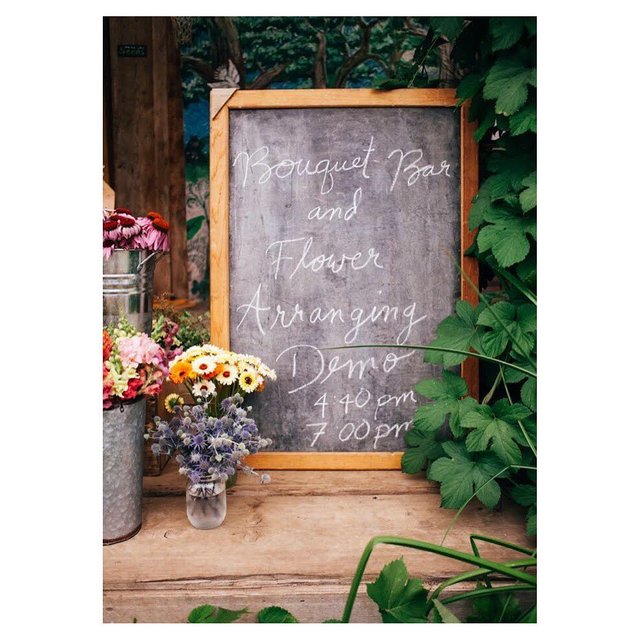 Bouquet Bar
and
Flower
Arranging
Demo
4:40 pm
7:00 pm